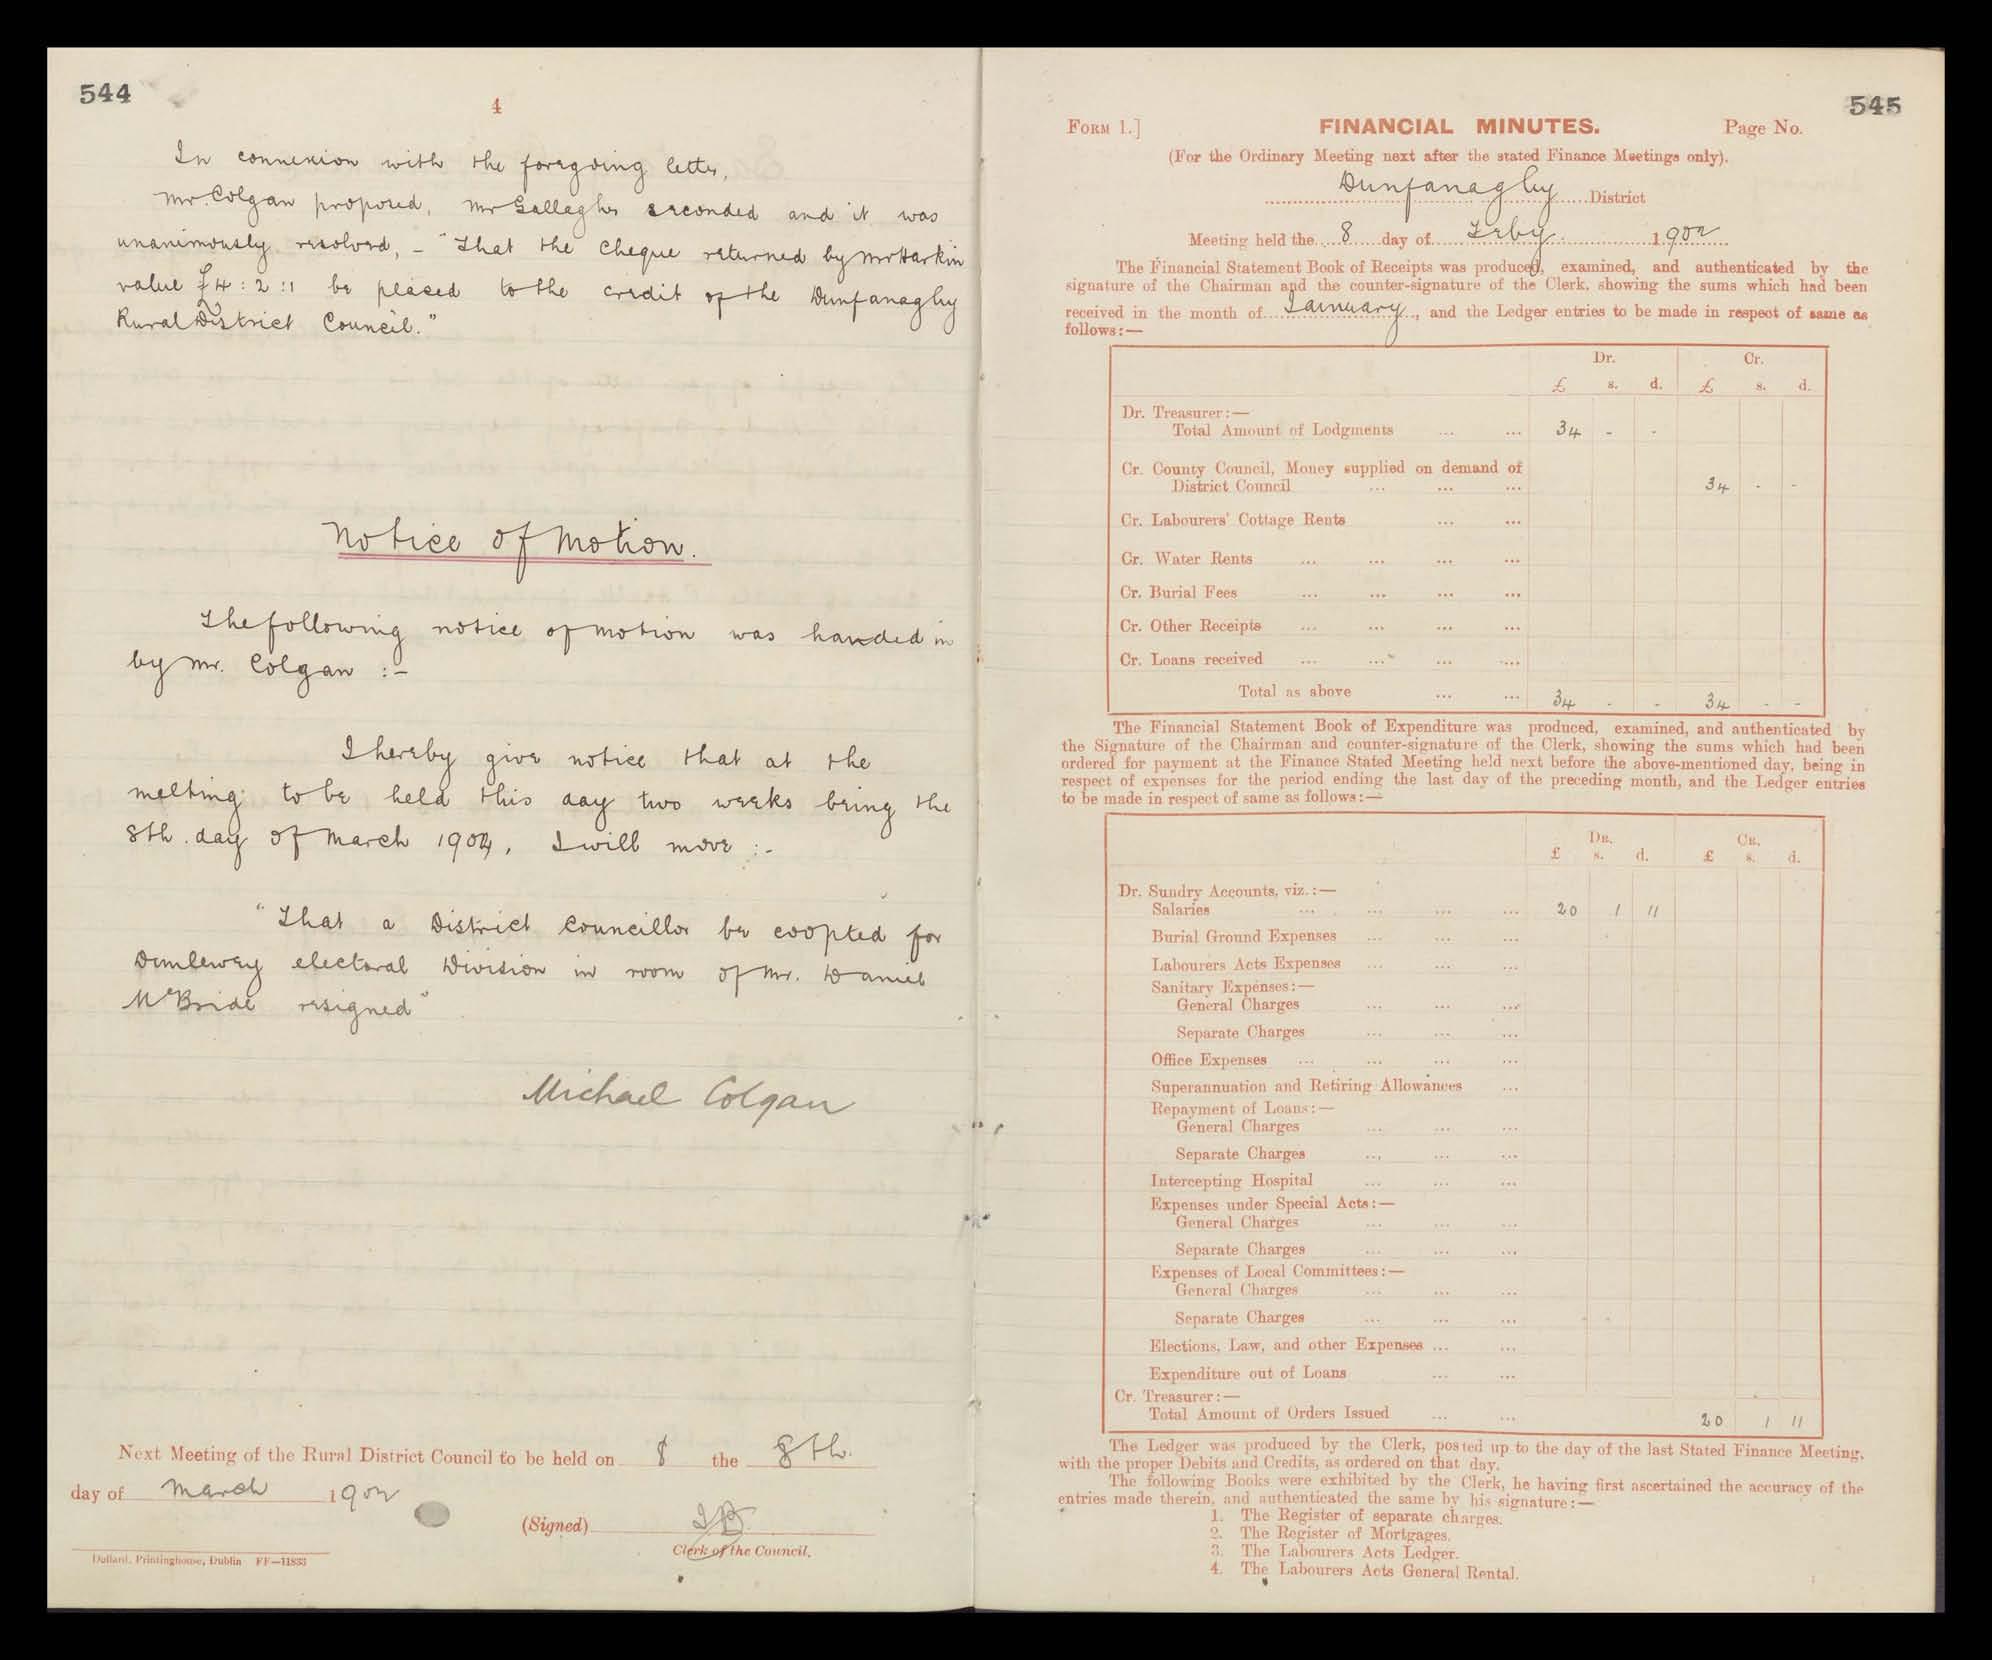 544
4
In connexion with the foregoing letter,
Mr. Colgan proposed, Mr Gallagher seconded and it was
unanimously resolved, - "That the cheque returned by Mr Harkin
value £4:2:11 be placed to the credit of the Dunfanaghy
Rural District Council."
Notice of Motion.
The following notice of motion was handed in
by Mr. Colgan :-
I hereby give notice that at the
meeting to be held this day two weeks being the
8th. day of March 1902, I will move :-
"That a District Councillor be coopted for
Dunlewey electoral Division in room of Mr. Daniel
McBride resigned"
Michael Colgan
Next Meeting of the Rural District Council to be held on 8 the 8th.
day of March 1902
(Signed)
Clerk of the Council.
Dollard, Printinghouse, Dublin FF—11833
545
FORM 1.] FINANCIAL MINUTES. Page No.
(For the Ordinary Meeting next after the stated Finance Meetings only).
Dunfanaghy District
Meeting held the 8 day of Feby. 1902
The Financial Statement Book of Receipts was produced, examined, and authenticated by the
signature of the Chairman and the counter-signature of the Clerk, showing the sums which had been
received in the month of January, and the Ledger entries to be made in respect of same as
follows:—
Dr. Cr.
£ s. d. £ s. d.
Dr. Treasurer:—
Total Amount of Lodgments ... ... 34 - -
Cr. County Council, Money supplied on demand of
District Council ... ... ... 34 - -
Cr. Labourers' Cottage Rents ... ...
Cr. Water Rents ... ... ... ...
Cr. Burial Fees ... ... ... ...
Cr. Other Receipts ... ... ... ...
Cr. Loans received ... ... ... ...
Total as above ... ... 34 - - 34 - -
The Financial Statement Book of Expenditure was produced, examined, and authenticated by
the Signature of the Chairman and counter-signature of the Clerk, showing the sums which had been
ordered for payment at the Finance Stated Meeting held next before the above-mentioned day, being in
respect of expenses for the period ending the last day of the preceding month, and the Ledger entries
to be made in respect of same as follows:—
DR. CR.
£ s. d. £ s. d.
Dr. Sundry Accounts, viz.:—
Salaries ... ... ... ... 20 1 11
Burial Ground Expenses ... ... ...
Labourers Acts Expenses ... ... ...
Sanitary Expenses:—
General Charges ... ... ...
Separate Charges ... ... ...
Office Expenses ... ... ... ...
Superannuation and Retiring Allowances ...
Repayment of Loans:—
General Charges ... ... ...
Separate Charges ... ... ...
Intercepting Hospital ... ... ...
Expenses under Special Acts:—
General Charges ... ... ...
Separate Charges ... ... ...
Expenses of Local Committees:—
General Charges ... ... ...
Separate Charges ... ... ...
Elections, Law, and other Expenses ... ...
Expenditure out of Loans ... ...
Cr. Treasurer:—
Total Amount of Orders Issued ... ... 20 1 11
The Ledger was produced by the Clerk, posted up to the day of the last Stated Finance Meeting,
with the proper Debits and Credits, as ordered on that day.
The following Books were exhibited by the Clerk, he having first ascertained the accuracy of the
entries made therein, and authenticated the same by his signature:—
1. The Register of separate charges.
2. The Register of Mortgages.
3. The Labourers Acts Ledger.
4. The Labourers Acts General Rental.